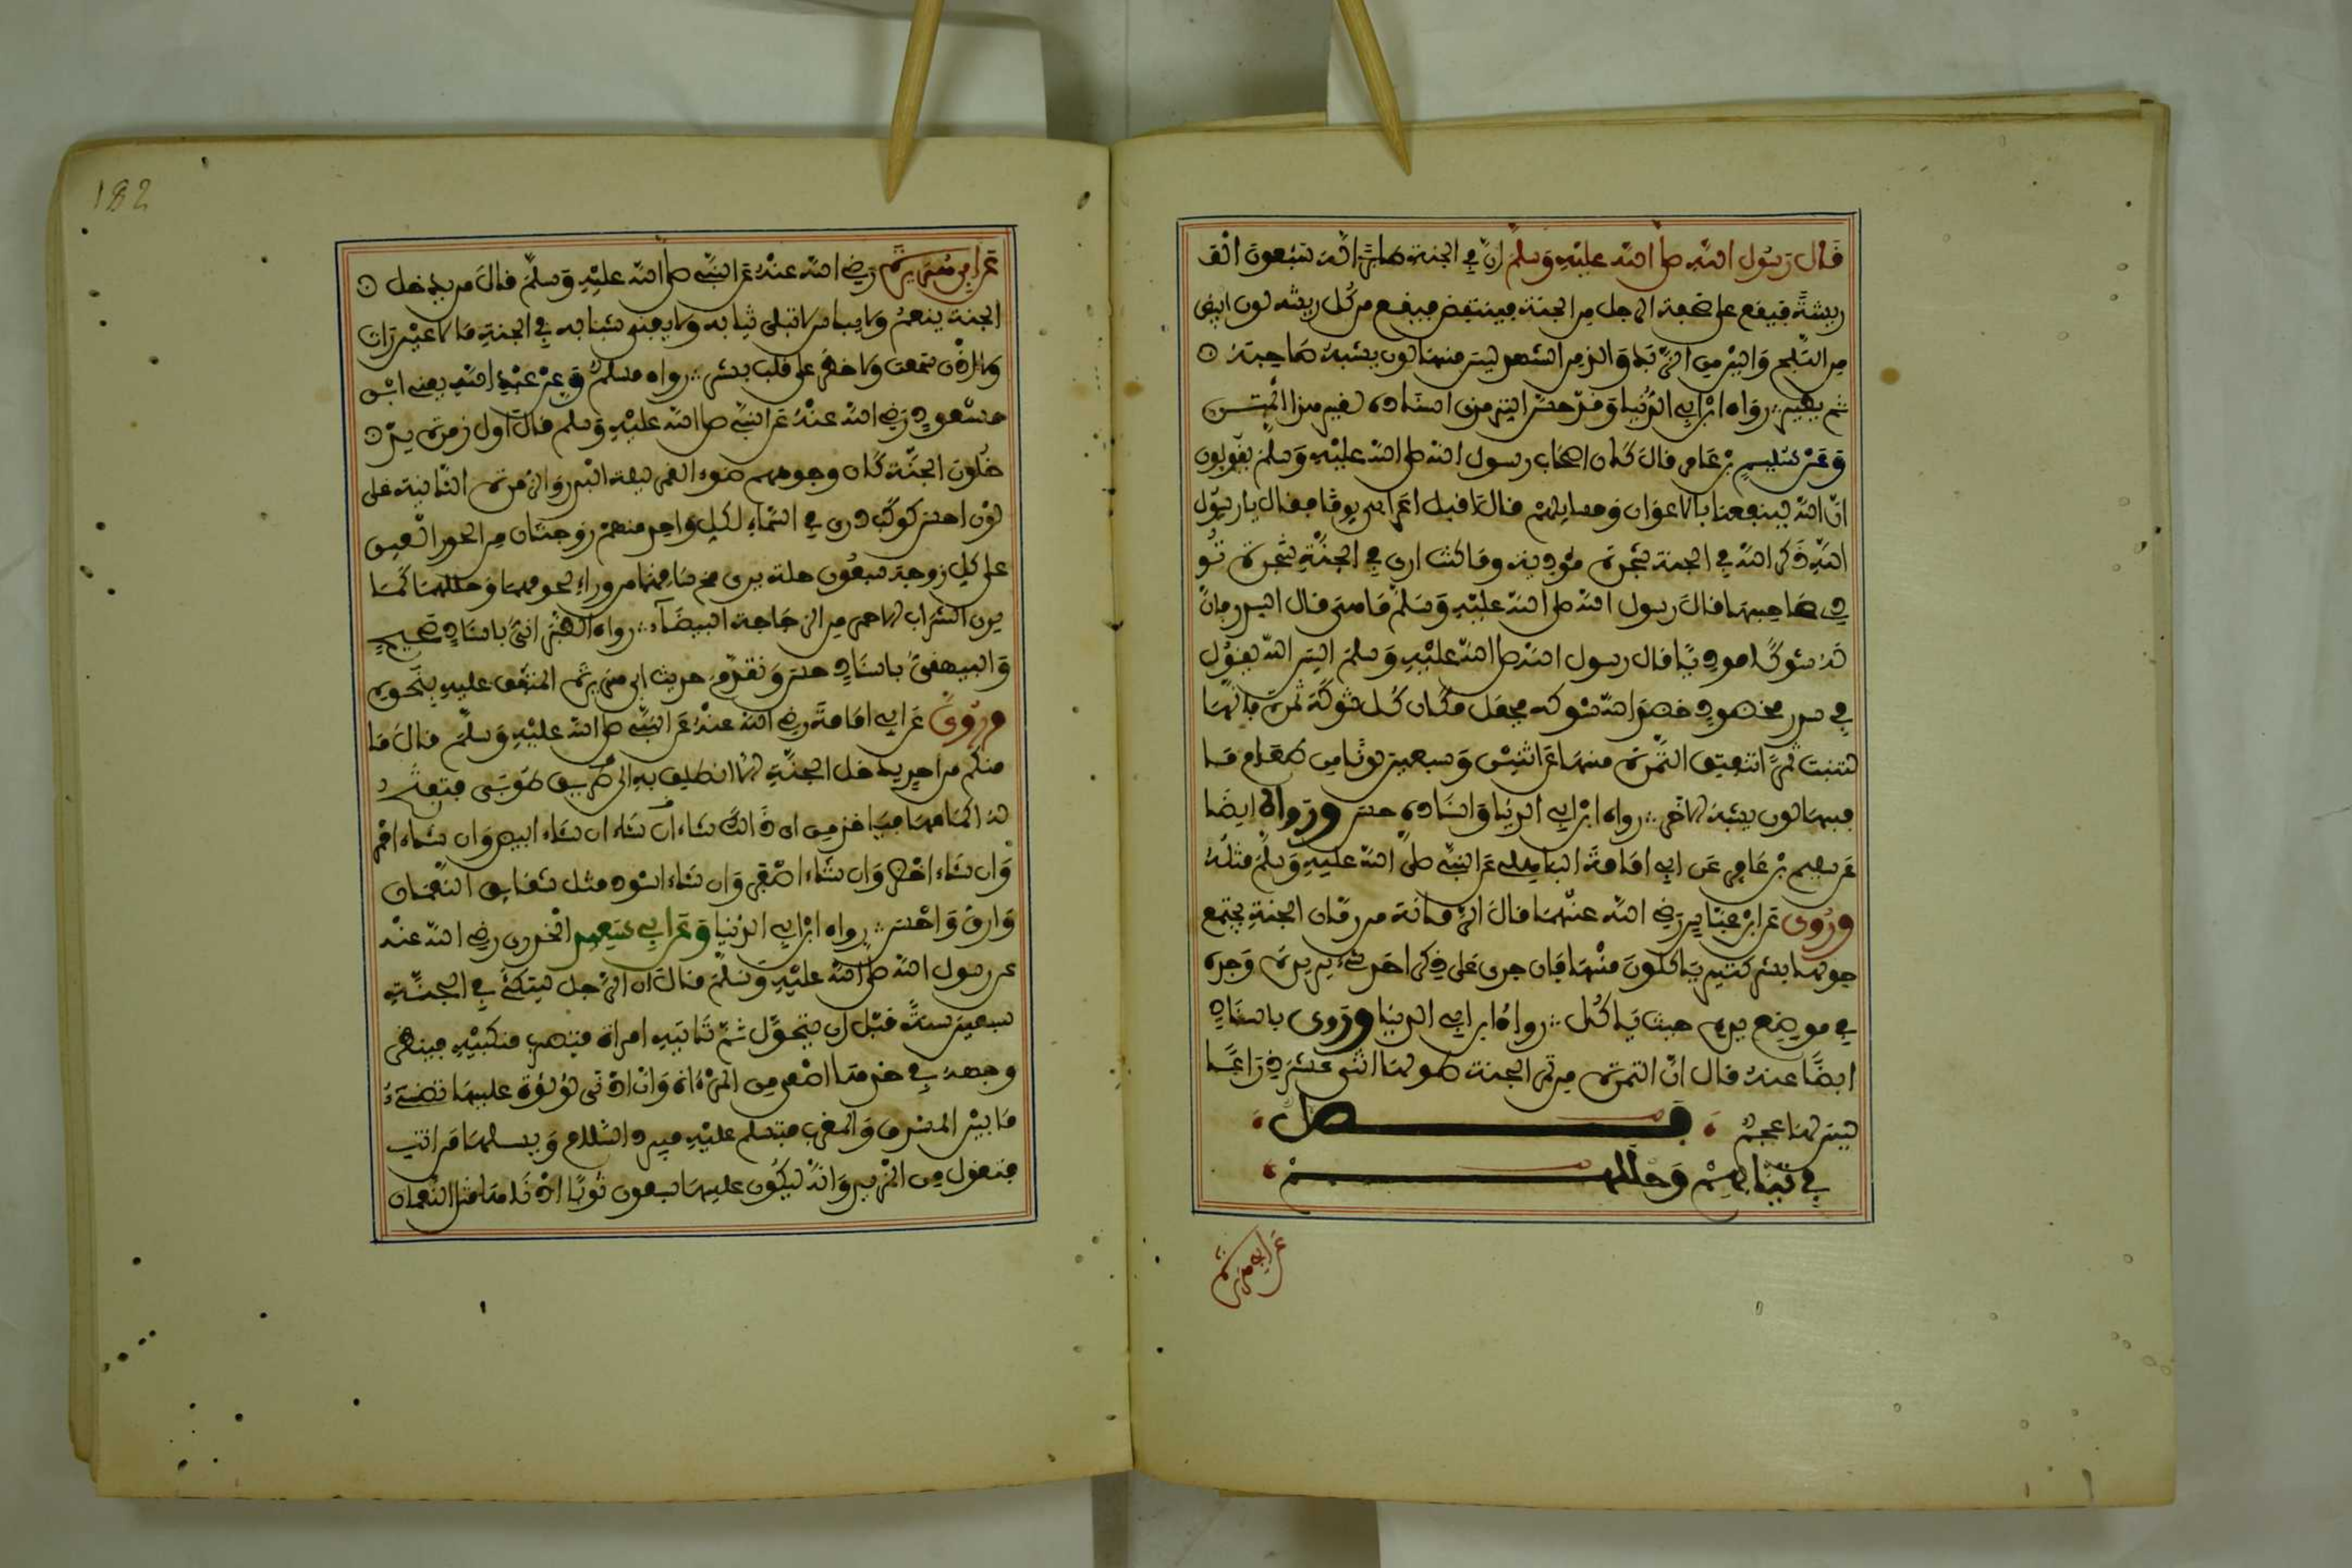 قال رسول الله صلى الله عليه وسلم ان في الجنة طائرا له سبعون الف
ريشة فيقع على صحفة الرجل من الجنة فينتفض فيقع من كل ريشة لون ابيض
من الثلج والين من الزبد والذ من الشهد ليس منها لون يشبه صاحبه
ثم يطير رواه ابن ابي الدنيا وقد حسن الترمذي اسناده لغير هذا المتن
وعن سليم بن عامر قال كان اصحاب رسول الله صلى الله عليه وسلم يقولون
ان الله لينفعنا بالاعراب ومسايلهم قال اقبل اعرابي يوما فقال يا رسول
الله ذكر الله في الجنة شجرة موذية وما كنت ارى في الجنة شجرة تو
ذي صاحبها فقال رسول الله صلى الله عليه وسلم ما هي قال السدر فان
له شوكا موذيا قال رسول الله صلى الله عليه وسلم اليس الله يقول
في سدر مخضود خضد الله شوكه فجعل مكان كل شوكة ثمرة فانها
لتنبت ثمرا تنفتق الثمرة منها عن اثنين وسبعين لونا من طعام ما
فيها لون يشبه الاخر رواه ابن ابي الدنيا واسناده حسن ورواه ايضا
عن سليم بن عامر عن ابي امامة الباهلي عن النبي صلى الله عليه وسلم مثله
وروي عن ابن عباس رضي الله عنهما قال الرمانة من رمان الجنة يجتمع
حولها بشر كثير ياكلون منها فان جرى على ذكر احدهم شيء يريده وجده
في موضع يده حيث ياكل رواه ابن ابي الدنيا وروى باسناده
ايضا عنه قال ان الثمرة من ثمر الجنة طولها اثنى عشر ذراعا
ليس لها عجم فصل
في ثيابهم وحللهم
عن ابي هريرة
182
عن ابي هريرة رضي الله عنه عن النبي صلى الله عليه وسلم قال من يدخل
الجنة ينعم ولا يباس لا تبلى ثيابه ولا يفنى شبابه في الجنة ما لا عين رات
ولا اذن سمعت ولا خطر على قلب بشر رواه مسلم وعن عبد الله يعني ابن
مسعود رضي الله عنه عن النبي صلى الله عليه وسلم قال اول زمرة يد
خلون الجنة كان وجوههم ضوء القمر ليلة البدر والزمرة الثانية على
لون احسن كوكب دري في السماء لكل واحد منهم زوجتان من الحور العين
على كل زوجة سبعون حلة يرى مخ ساقهما من وراء لحومهما وحللهما كما
يرى الشراب الاحمر من الزجاجة البيضاء رواه الطبراني باسناد صحيح
والبيهقي باسناد حسن وتقدم حديث ابي هريرة المتفق عليه بنحوه
وروي عن ابي امامة رضي الله عنه عن النبي صلى الله عليه وسلم قال ما
منكم من احد يدخل الجنة الا انطلق به الى طريق طوبى فتفتح
له اكمامها فياخذ من اي ذلك شاء ان شاء ان شاء ابيض وان شاء احمر
وان شاء اخضر وان شاء اصفر وان شاء اسود مثل شقايق النعمان
وارق واحسن رواه ابن ابي الدنيا وعن ابي سعيد الخدري رضي الله عنه
عن رسول الله صلى الله عليه وسلم قال ان الرجل ليتكئ في الجنة
سبعين سنة قبل ان يتحول ثم تاتيه امراة فتضرب منكبيه فينظر
وجهه في خدها اصفى من المرءاة وان ادنى لؤلؤة عليها تضيء
ما بين المشرق والمغرب فتسلم عليه فيرد السلام ويسلها من انت
فتقول من المزيد وانه ليكون عليها سبعون ثوبا ادناها مثل النعمان